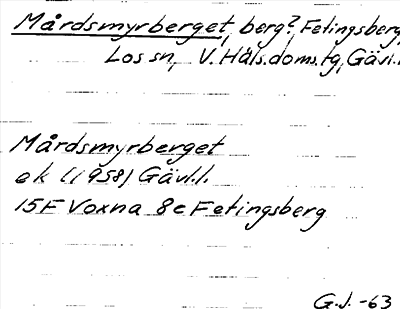 Mårdsmyrberget, berg?, Fetingsberg,
Los sn, V. Häls.doms.tg, Gävl.l.
Mårdsmyrberget
ek (1958) Gävl.l.
15F Voxna 8e Fetingsberg
G.J. -63